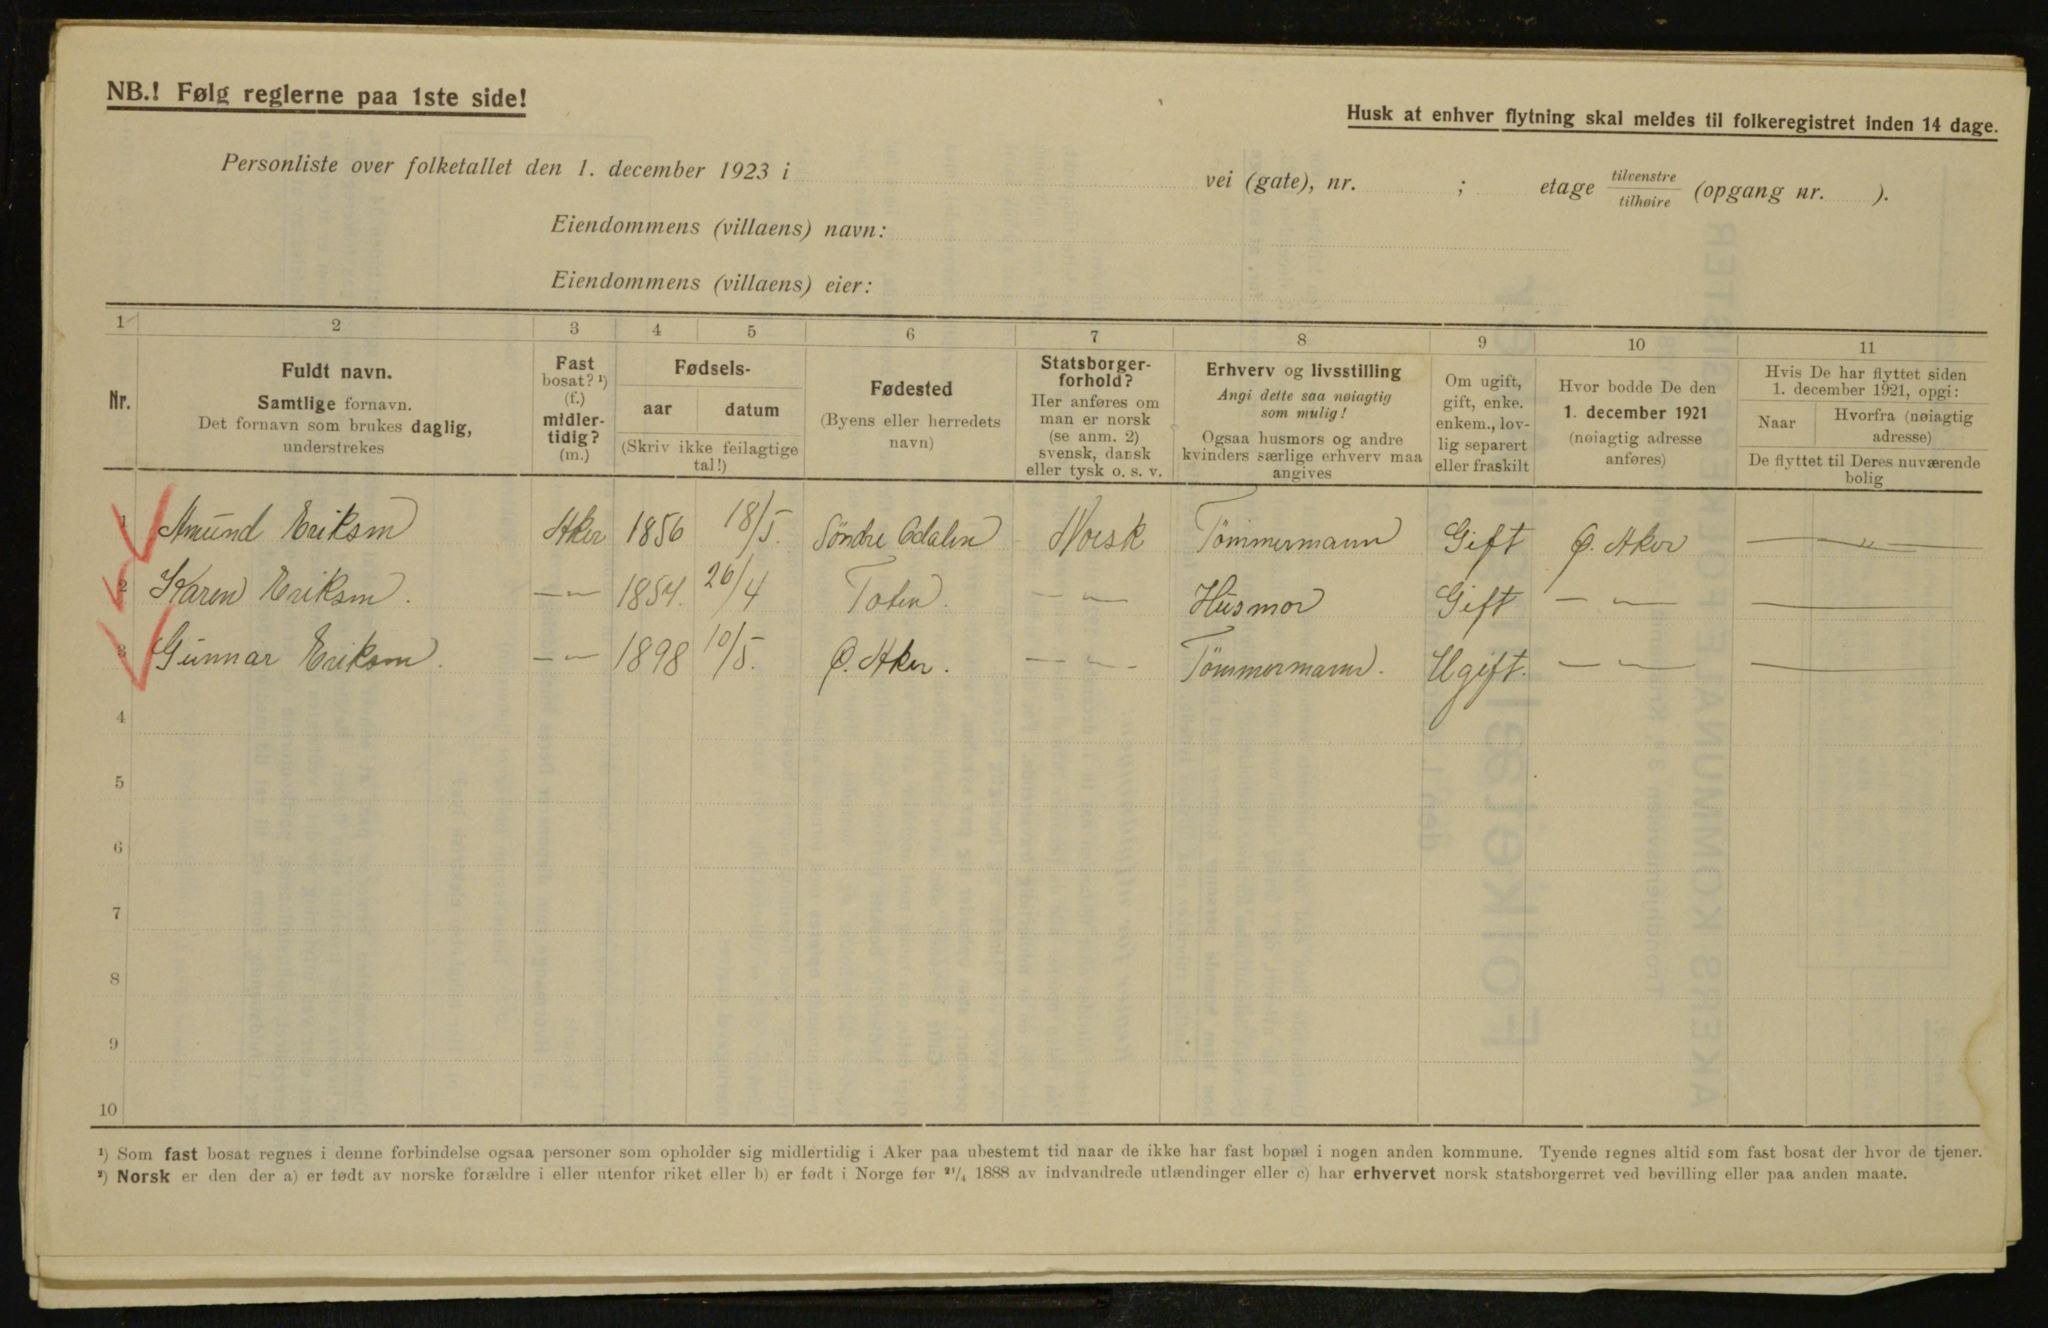 NB.! Følg reglerne paa 1ste side!
Husk at enhver flytning skal meldes til folkeregistret inden 14 dage.
Personliste over folketallet den 1. december 1923 i vei (gate), nr. ; etage tilvenstre tilhøire (opgang nr. ).
Eiendommens (villaens) navn:
Eiendommens (villaens) eier:
1 2 3 4 5 6 7 8 9 10 11
Nr.
Fuldt navn.
Samtlige fornavn.
Det fornavn som brukes daglig,
understrekes
Fast
bosat? ¹)
(f.)
midler-
tidig?
(m.)
Fødsels-
aar datum
(Skriv ikke feilagtige
tal!)
Fødested
(Byens eller herredets
navn)
Statsborger-
forhold?
Her anføres om
man er norsk
(se anm. 2)
svensk, dansk
eller tysk o. s. v.
Erhverv og livsstilling
Angi dette saa nøiagtig
som mulig!
Ogsaa husmors og andre
kvinders særlige erhverv maa
angives
Om ugift,
gift, enke.
enkem., lov-
lig separert
eller fraskilt
Hvor bodde De den
1. december 1921
(nøiagtig adresse
anføres)
Hvis De har flyttet siden
1. december 1921, opgi:
Naar
Hvorfra (nøiagtig
adresse)
De flyttet til Deres nuværende
bolig
1 Amund Eriksen Aker 1856 18/5. Söndre Odalen Norsk Tömmermann Gift Ø. Aker — „ —
2 Karen Eriksen. — „ — 1854. 26/4 Toten. — „ — Husmor Gift — „ — —
3 Gunnar Eriksen. — „ — 1898 10/5. Ø. Aker. — „ — Tömmermann. Ugift. — „ — —
4
5
6
7
8
9
10
¹) Som fast bosat regnes i denne forbindelse ogsaa personer som opholder sig midlertidig i Aker paa ubestemt tid naar de ikke har fast bopæl i nogen anden kommune. Tyende regnes altid som fast bosat der hvor de tjener.
²) Norsk er den der a) er født av norske forældre i eller utenfor riket eller b) er født i Norge før ²¹/₄ 1888 av indvandrede utlændinger eller c) har erhvervet norsk statsborgerret ved bevilling eller paa anden maate.